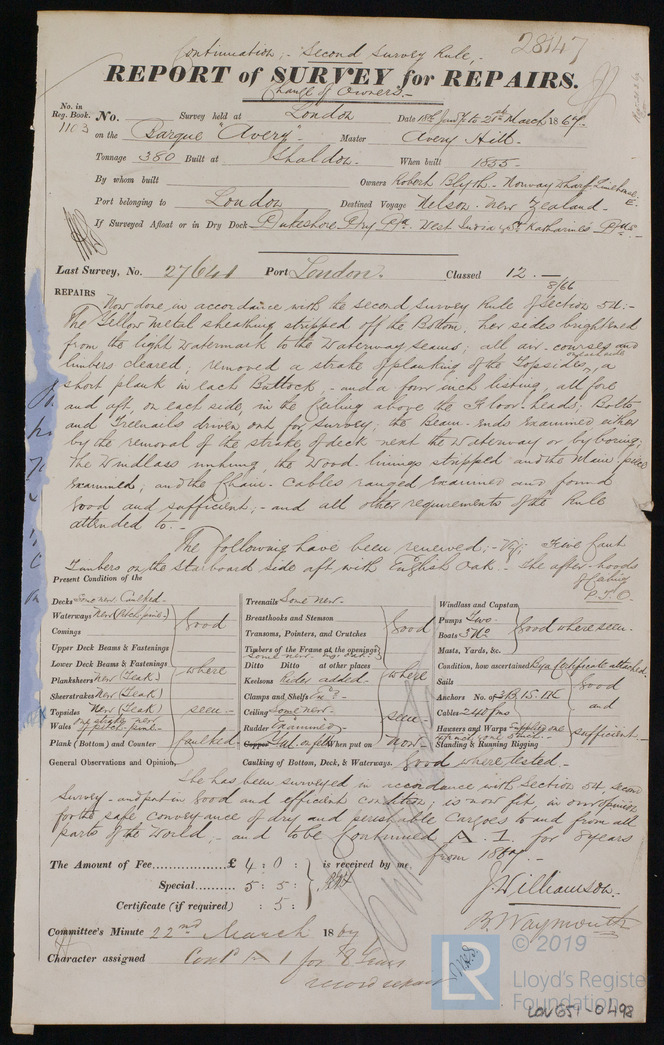 Continuation, - Second Survey Rule, -
28147
REPORT of SURVEY for REPAIRS.
Change of Owners. -
No. in Reg. Book. 1103 No. Survey held at London Date March 1867
on the Barque "Avery" Master Avery Hill.
Tonnage 380 Built at Shaldon. When built 1855
By whom built Owners Robert Blyth. Norway Wharf Limehouse
Port belonging to London Destined Voyage Nelson. New Zealand.
If Surveyed Afloat or in Dry Dock Dukeshore Dry Dk. West India & St Katharines Dks
Last Survey, No. 27641 Port London. Classed 12. -
8/66
REPAIRS Now done, in accordance with the Second Survey Rule of Section 54: -
The Yellow Metal sheathing stripped off the Bottom, her sides brightened
from the light Watermark to the Waterway seams; all air-courses and
limbers cleared; removed a strake of planking of the Topsides, a
short plank in each Buttock, - and a four inch listing, all fore
and aft, on each side, in the Ceiling above the Floor-heads; Bolts
and Treenails driven out for survey; the Beam-ends Examined either
by the removal of the strake of deck next the Waterway or by boring;
The Windlass unhung, the Wood-linings stripped and the Main-piece
Examined; and the Chain-Cables ranged Examined and found
Good and sufficient; - and all other requirements of the Rule
attended to. -
The following have been renewed; - Viz; Five Cant
Timbers on the starboard side aft, with English Oak. - The after-hoods
of Ceiling
P.T.O.
Present Condition of the
Decks Some new. Caulked.
Waterways New (Pitch pine)
Comings
Upper Deck Beams & Fastenings
Lower Deck Beams & Fastenings
Planksheers New (Teak)
Sheerstrakes New (Teak)
Topsides New (Teak)
Wales one strake new of pitch pine
Plank (Bottom) and Counter
Good where seen - Caulked
Treenails Some new.
Breasthooks and Stemson
Transoms, Pointers, and Crutches
Timbers of the Frame at the openings
Ditto Ditto at other places
Keelsons Rider added.
Clamps and Shelfs
Ceiling Some new.
Rudder Examined
When put on now.
Good where seen.
Windlass and Capstan
Pumps Two
Boats 3 No
Masts, Yards, &c.
Good where seen.
Condition, how ascertained By a Certificate attached.
Sails
Anchors No. of
Cables 240 fms
Hawsers and Warps
Standing & Running Rigging
Good and sufficient.
General Observations and Opinion, Caulking of Bottom, Deck, & Waterways. Good where tested.
She has been surveyed in accordance with Section 54, second
Survey - and put in Good and efficient condition, is now fit, in our opinion
for the safe conveyance of dry and perishable Cargoes to and from all
parts of the World, - and to be Continued A. 1. for 8 years
from 1867. -
The Amount of Fee........... £ 4 : 0 : is received by me,
Special........... 5 : 5 :
Certificate (if required) : 5 :
J. Williamson.
B. Waymouth
Committee's Minute 22nd March 1867
Character assigned Contd A 1 for 8 Years
© 2019
LR
Lloyd's Register
Foundation
LOV651-0498